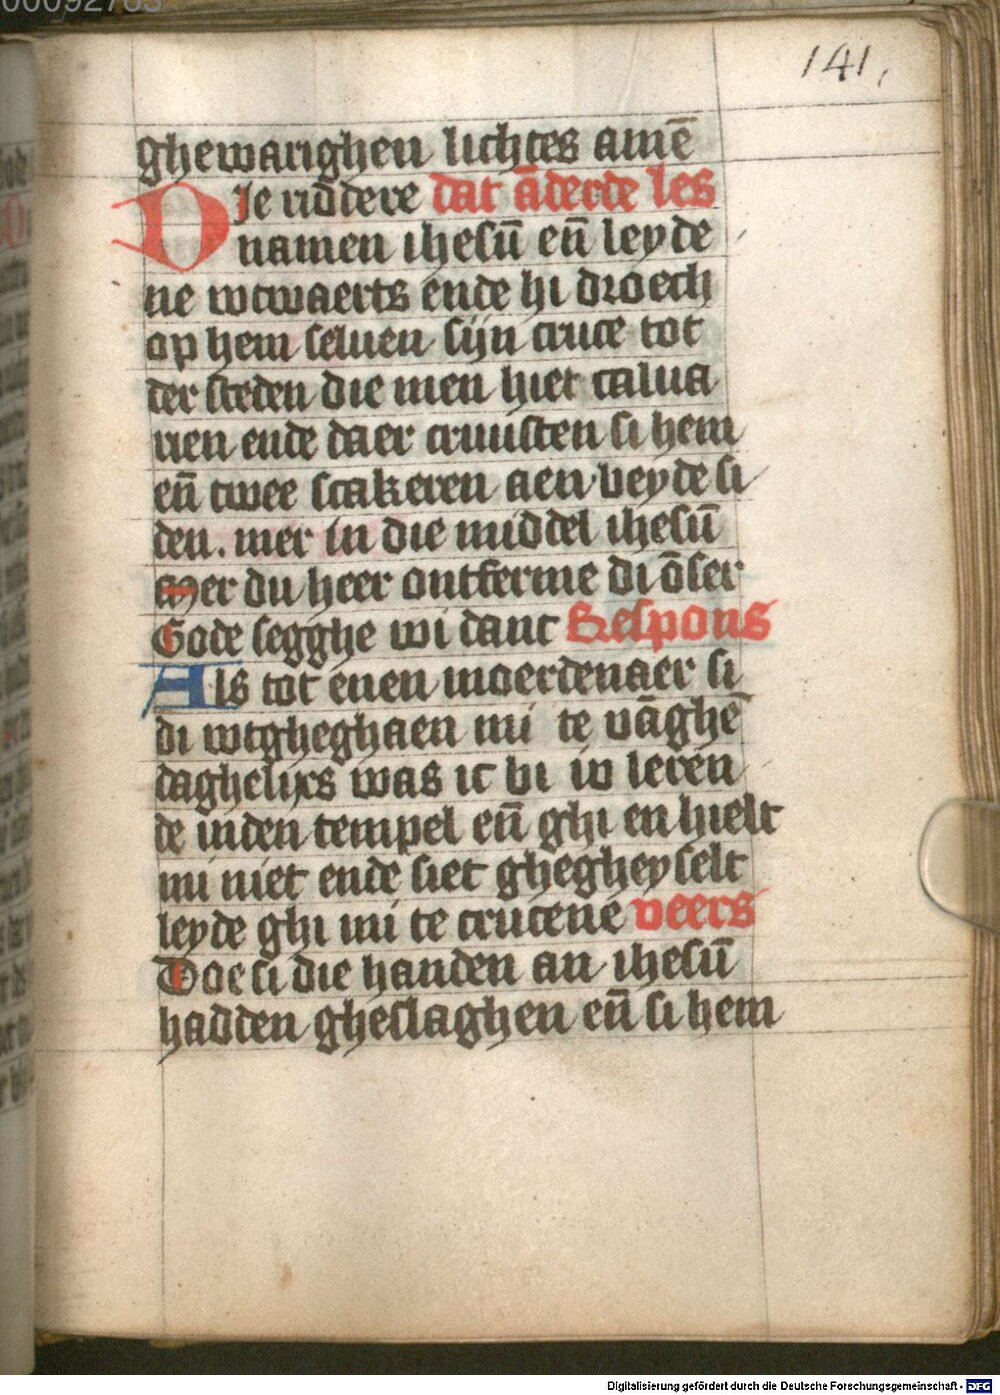 00092783
141,
ghewarighen lichtes amē
DJe riddere dat āderde les
namen ihesū eñ leyde
ne wtwaerts ende hi droech
op hem seluen sijn cruce tot
der steden die men hiet calua
rien ende daer cruusten si hem
eñ twee scakeren aen beyde si
den. mer in die middel ihesū
Mer du heer ontferme di ōser
Gode segghe wi danc Respons
Als tot enen moerdenaer si
di wtgheghaen mi te vāghē
daghelijcs was ic bi iv leren
de inden tempel eñ ghi en hielt
mi niet ende siet ghegheyselt
leyde ghi mi te crucene veers
Doe si die handen an ihesū
hadden gheslaghen eñ si hem
Digitalisierung gefördert durch die Deutsche Forschungsgemeinschaft - DFG